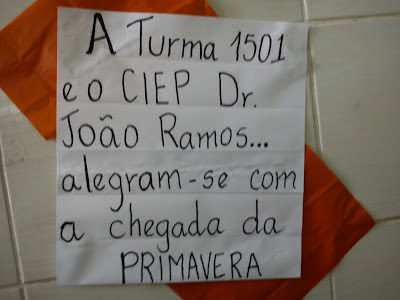 A Turma 1501
e o CIEP Dr.
João Ramos...
alegram-se com
a chegada da
PRIMAVERA